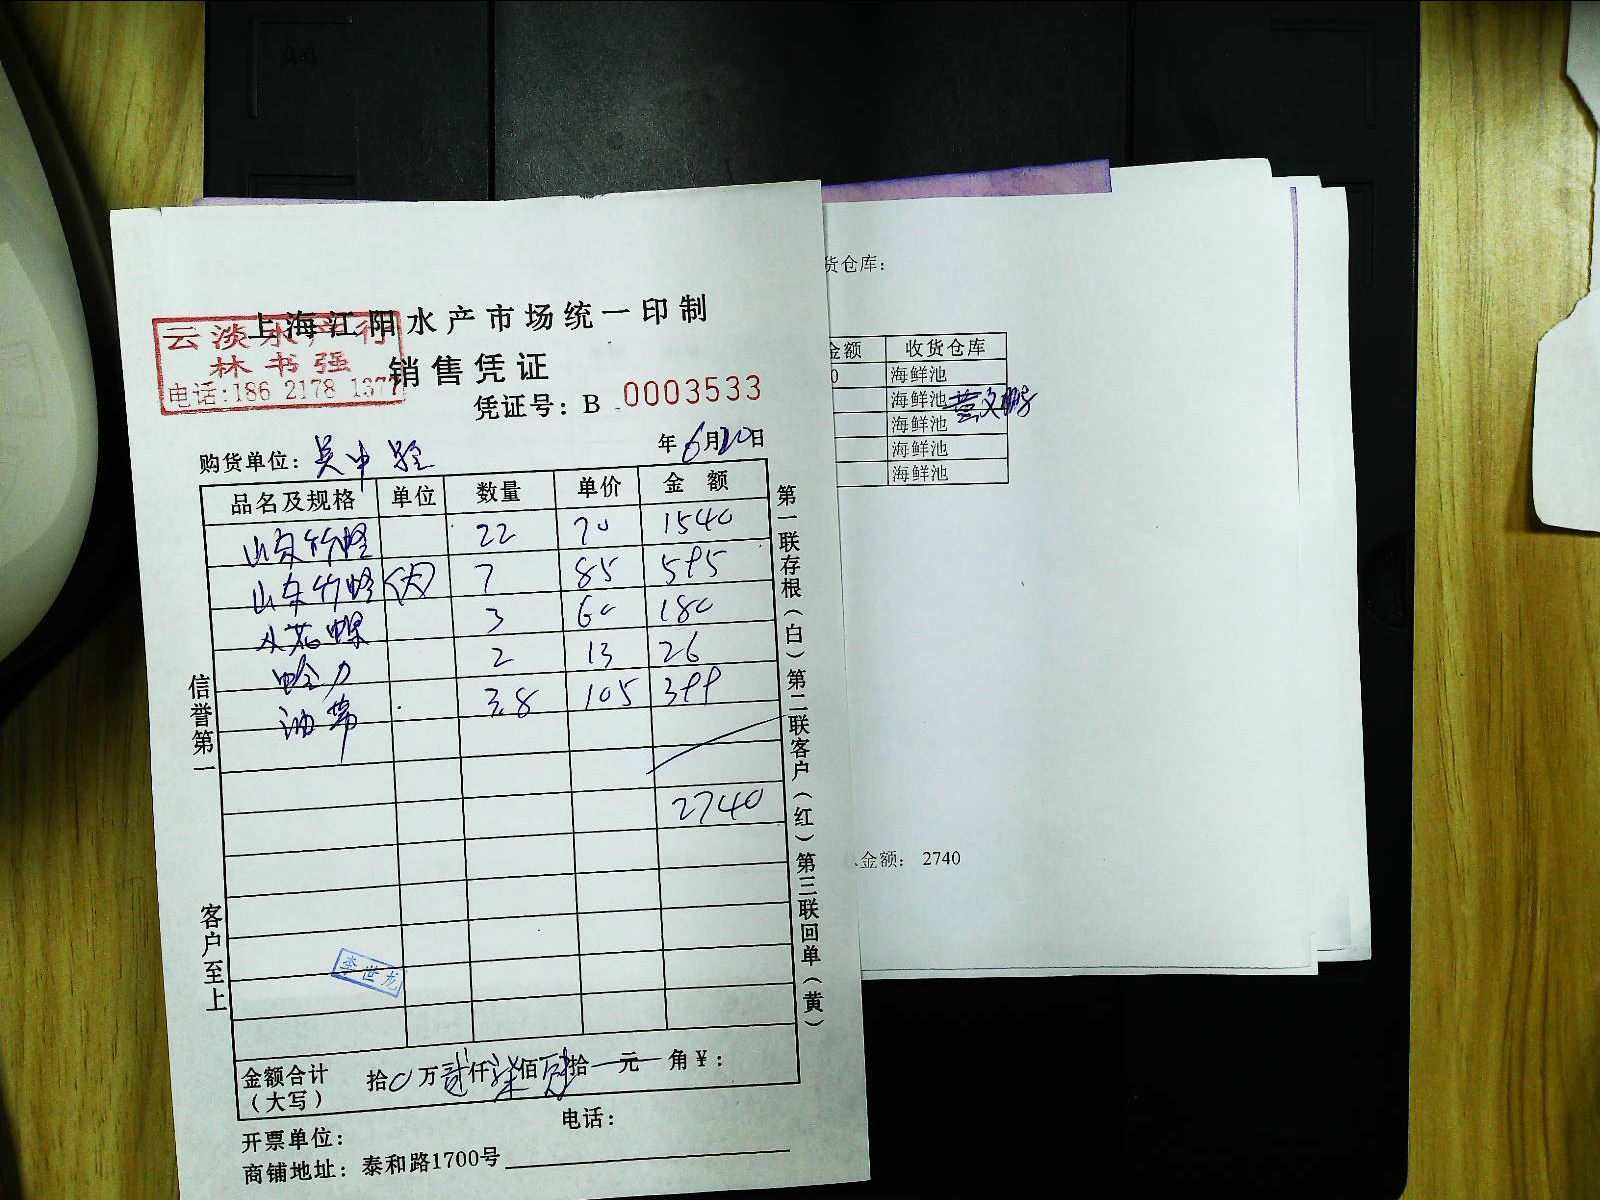 上海江阳水产市场统一印制
云淡水产行
林书强
电话:186 2178 1377
销售凭证
凭证号: B 0003533
购货单位: 吴中路
年6月20日
品名及规格 单位 数量 单价 金额
山东竹蛏 22 70 1540
山东竹蛏(大) 7 85 595
3 60 180
哈力 2 13 26
油 3.8 105 399
2740
信誉第一
客户至上
第一联存根(白)第二联客户(红)第三联回单(黄)
李世龙
金额合计
(大写)
拾0万贰仟柒佰肆拾元角¥:
开票单位:
电话:
商铺地址: 泰和路1700号
货仓库:
金额 收货仓库
0 海鲜池
海鲜池
海鲜池
海鲜池
海鲜池
金额: 2740